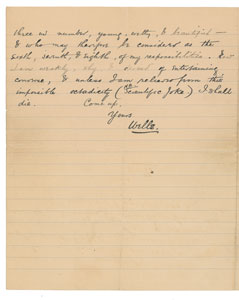 three in number, young, witty, & beautiful —
& who may therefore be considered as the
sixth, seventh, & eighth, of my responsibilities. Now
I am weakly, shy, & of entertaining
converse, & unless I am released from this
impossible (scientific joke) I shall
die. Come up.
Yours
Wells.